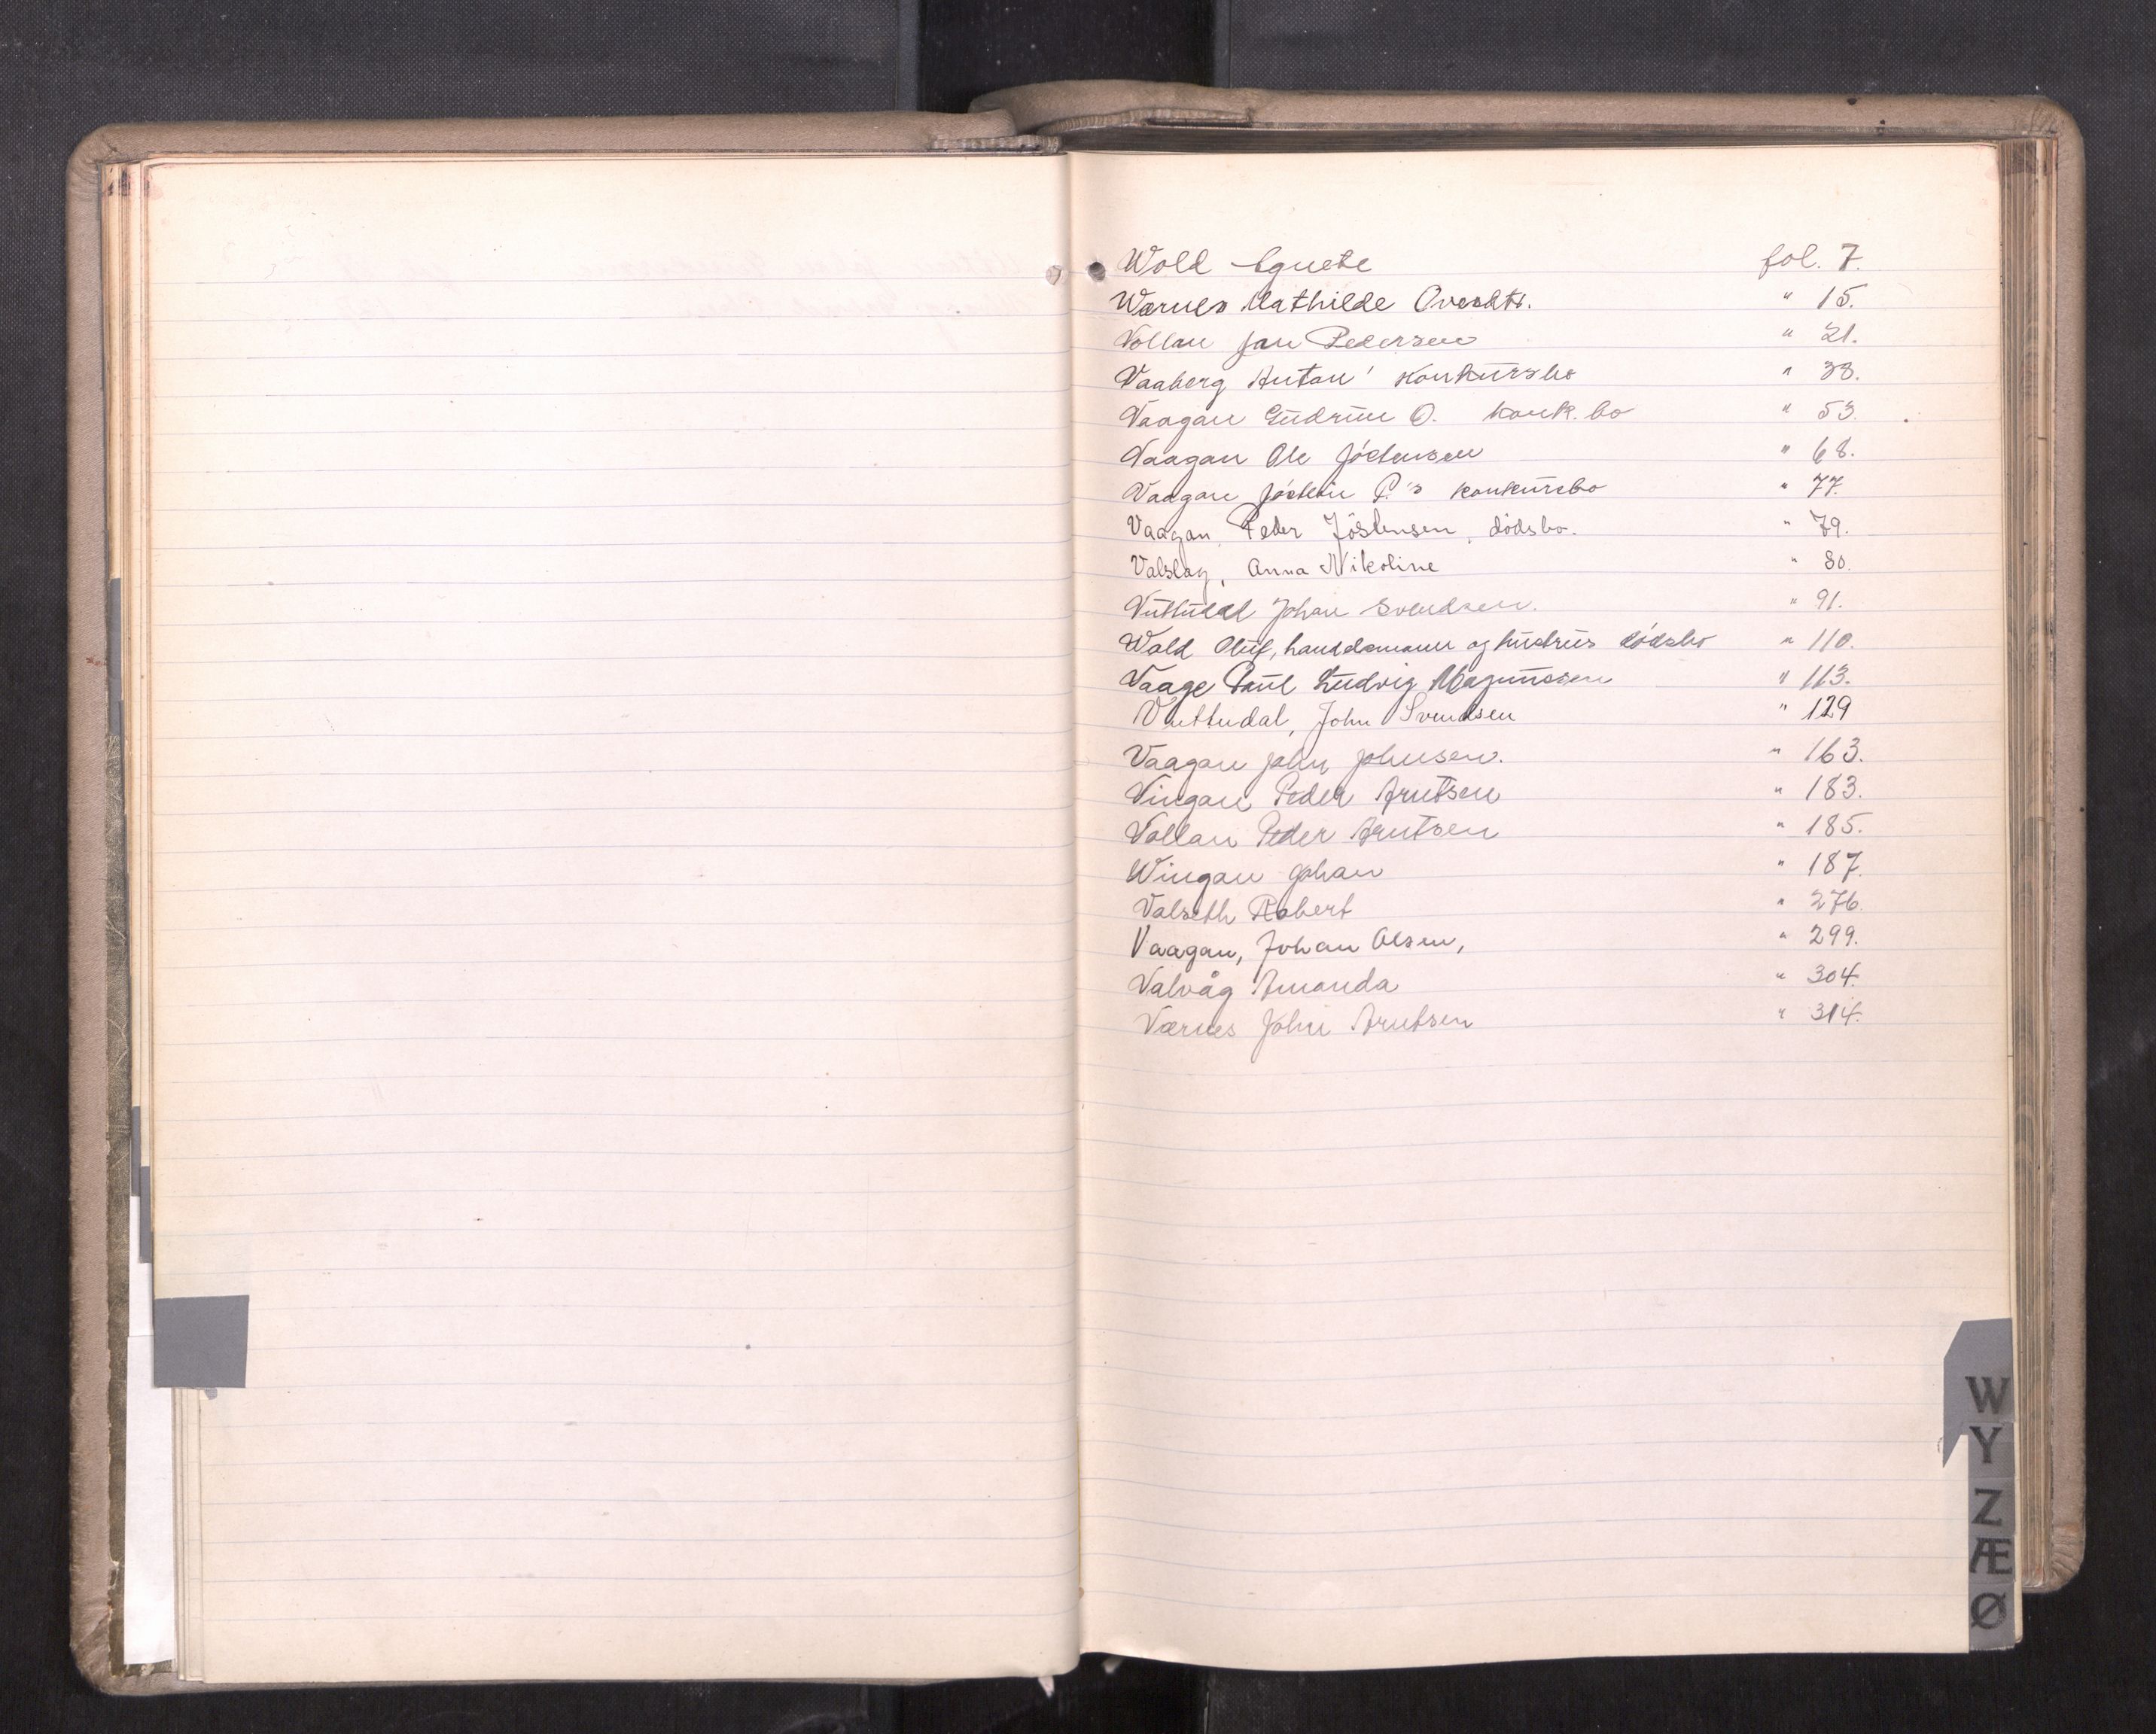 Wold Agnete fol. 7.
Wærnes Mathilde Oversdtr. " 15.
Vollan Jan Pedersen " 21.
Vaaberg Anton' konkursbo " 33.
Vaagan Gudrun O. konk.bo " 53.
Vaagan Ole Jöstensen " 68.
Vaagan Jöstein P.'s konkursbo " 77.
Vaagan, Peder Jöstensen, dödsbo. " 79.
Valslag, Anna Nikoline " 80.
Vuttudal Johan Svendsen. " 91.
Wold Oluf, handelsmann og hustrus dödsbo " 110.
Vaage Paul Ludvig Magnussen " 113.
Vuttudal, John Svendsen " 129
Vaagan John Johnsen. " 163.
Vingan Peder Arntsen " 183.
Vollan Peder Arntsen " 185.
Wingan Johan " 187.
Valseth Robert " 276.
Vaagan, Johan Olsen, " 299.
Valvåg Amanda " 304.
Værnes John Arntsen " 314.
W
Y
Z
Æ
Ø